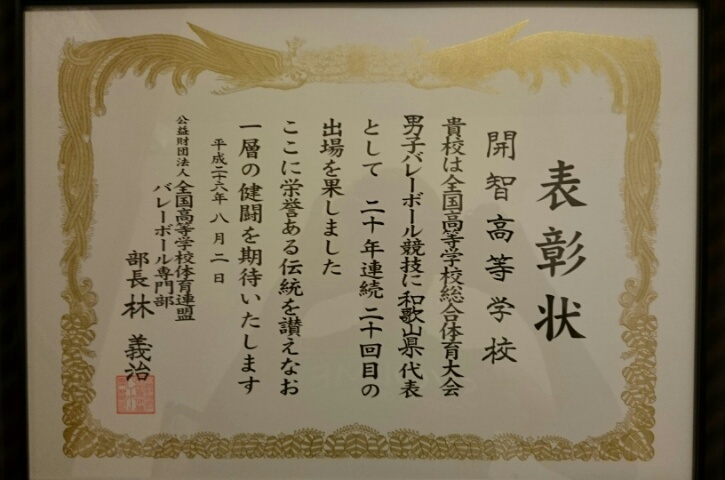 表彰状
開智高等学校
貴校は全国高等学校総合体育大会
男子バレーボール競技に和歌山県代表
として 二十年連続 二十回目の
出場を果しました
ここに栄誉ある伝統を讃えなお
一層の健闘を期待いたします
平成二十六年 八月 二日
公益財団法人全国高等学校体育連盟
バレーボール専門部
部長 林 義治